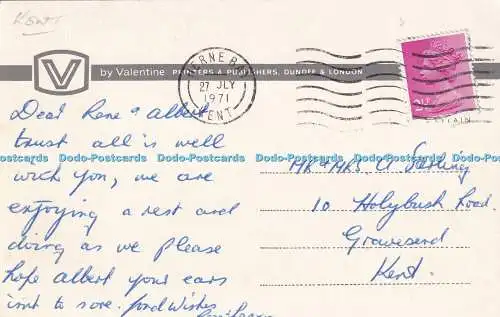 Kent
V
by Valentine PRINTERS & PUBLISHERS, DUNDEE & LONDON
HERNE B
27 JLY
1971
KENT
Dear Rene & Albert
trust all is well
with you, we are
enjoying a rest and
doing as we please
hope Albert your ears
isnt to sore. fond wishes
Mr & Mrs. A
10 Holybush Road.
Gravesend
Kent.
Dodo-Postcards Dodo-Postcards Dodo-Postcards Dodo-Postcards Dodo-Postcards Dodo-Postcards